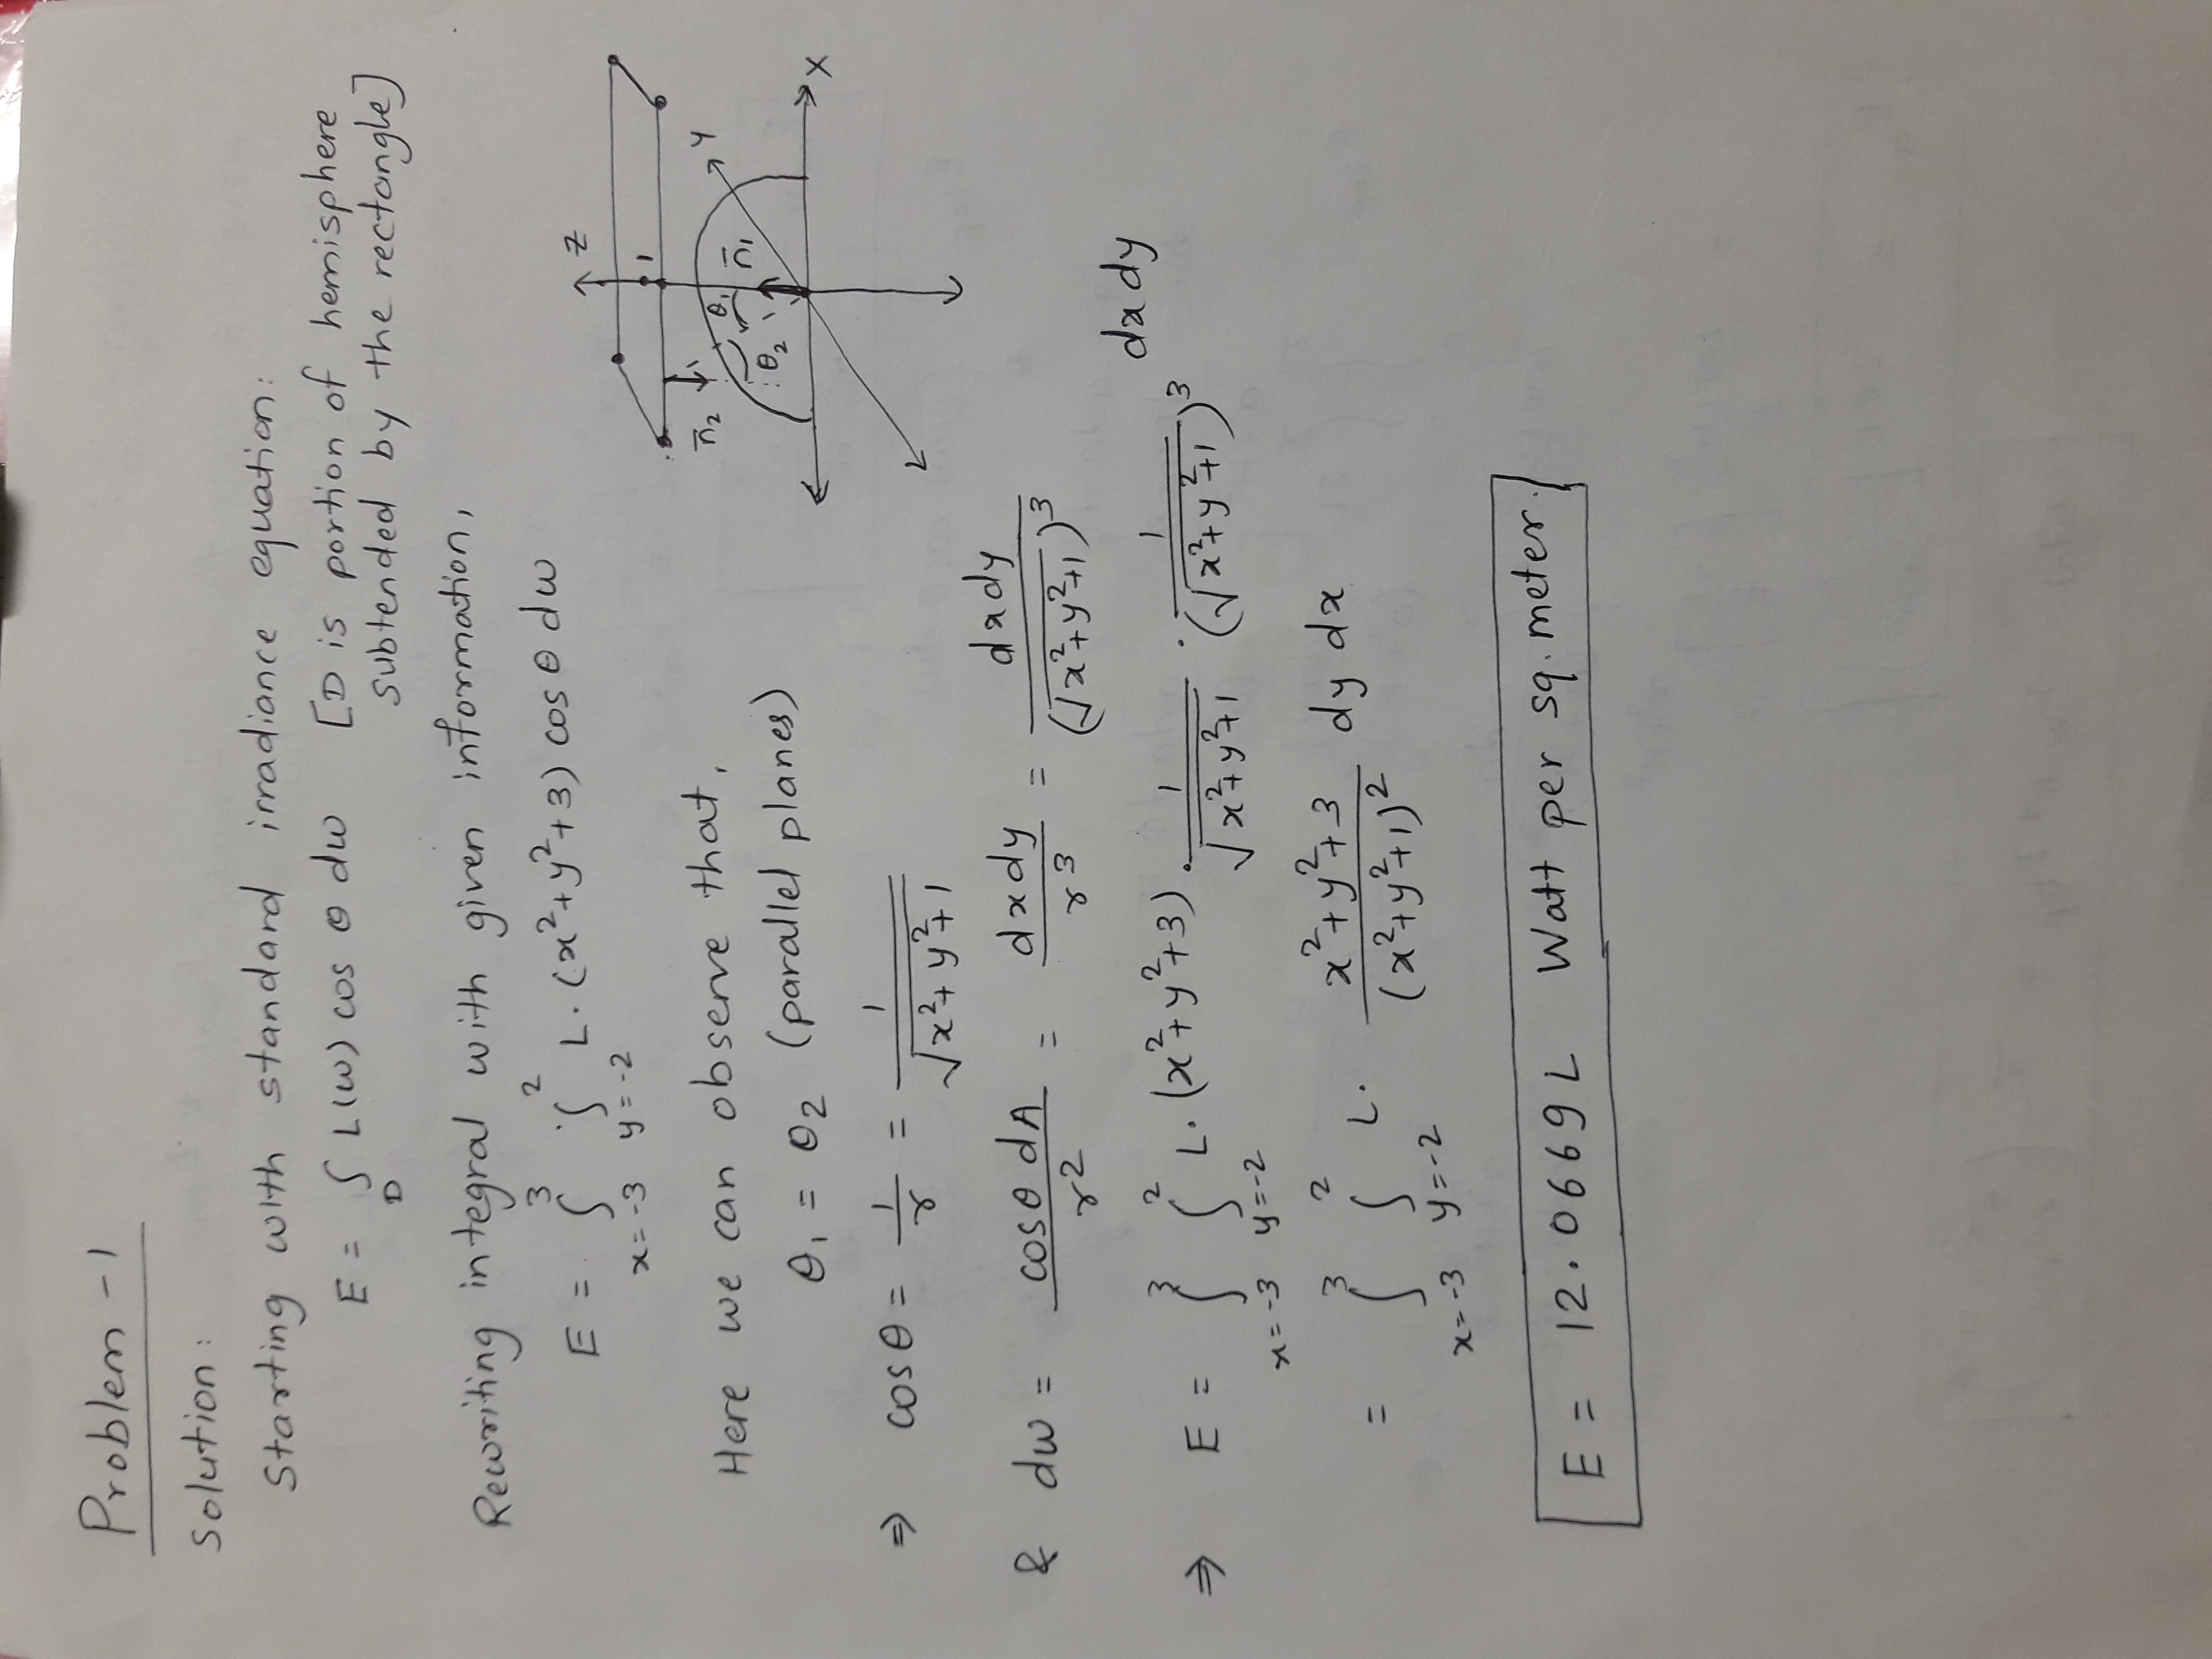 Problem - 1
Solution:
Starting with standard irradiance equation:
E = ∫_D L(ω) cos θ dω [D is portion of hemisphere
subtended by the rectangle]
Rewriting integral with given information,
E = ∫_{x=-3}^{3} ∫_{y=-2}^{2} L. (x²+y²+3) cos θ dω
Here we can observe that,
θ₁ = θ₂ (parallel planes)
⇒ cos θ = 1/r = 1/√(x²+y²+1)
& dω = cosθ dA / r² = dx dy / r³ = dx dy / (√(x²+y²+1))³
⇒ E = ∫_{x=-3}^{3} ∫_{y=-2}^{2} L. (x²+y²+3) . 1/√(x²+y²+1) . 1/(√(x²+y²+1))³ dx dy
= ∫_{x=-3}^{3} ∫_{y=-2}^{2} L. (x²+y²+3)/(x²+y²+1)² dy dx
E = 12.0669 L Watt per sq. meter.
Z
1
n̄₂
θ₁
n̄₁
Y
θ₂
X